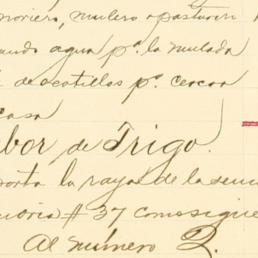 moviero, mulero y pasturero
ando agua pª. la mulada
de ocotillos pª. cercar
casa
bor de Trigo.
porta la raya de la sem
moria # 37 como sigue
Al número 2.